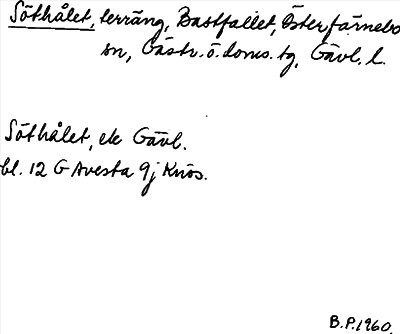 Söthålet, terräng, Bastfallet, Österfärnebo
sn, Gästr. ö. doms. tg, Gävl. l.
Söthålet, ek Gävl.
bl. 12 G Avesta 9j Knös.
B.P. 1960.